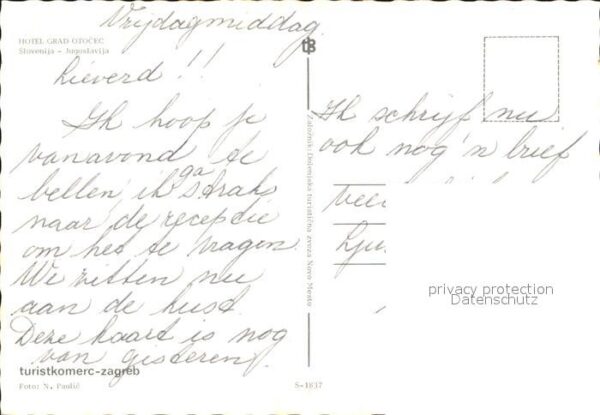 Vrijdagmiddag
HOTEL GRAD OTOČEC
Slovenija - Jugoslavija
tB
Lieverd !!
Ik hoop je
vanavond te
bellen, ik ga straks
naar de receptie
om het te vragen
We zitten nu
aan de kust.
Deze kaart is nog
van gisteren!
turistkomerc-zagreb
Foto: N. Paulič
Založnik: Dolenjska turistična zveza Novo Mesto
S-1637
Ik schrijf nu
ook nog 'n brief
Veel
privacy protection
Datenschutz